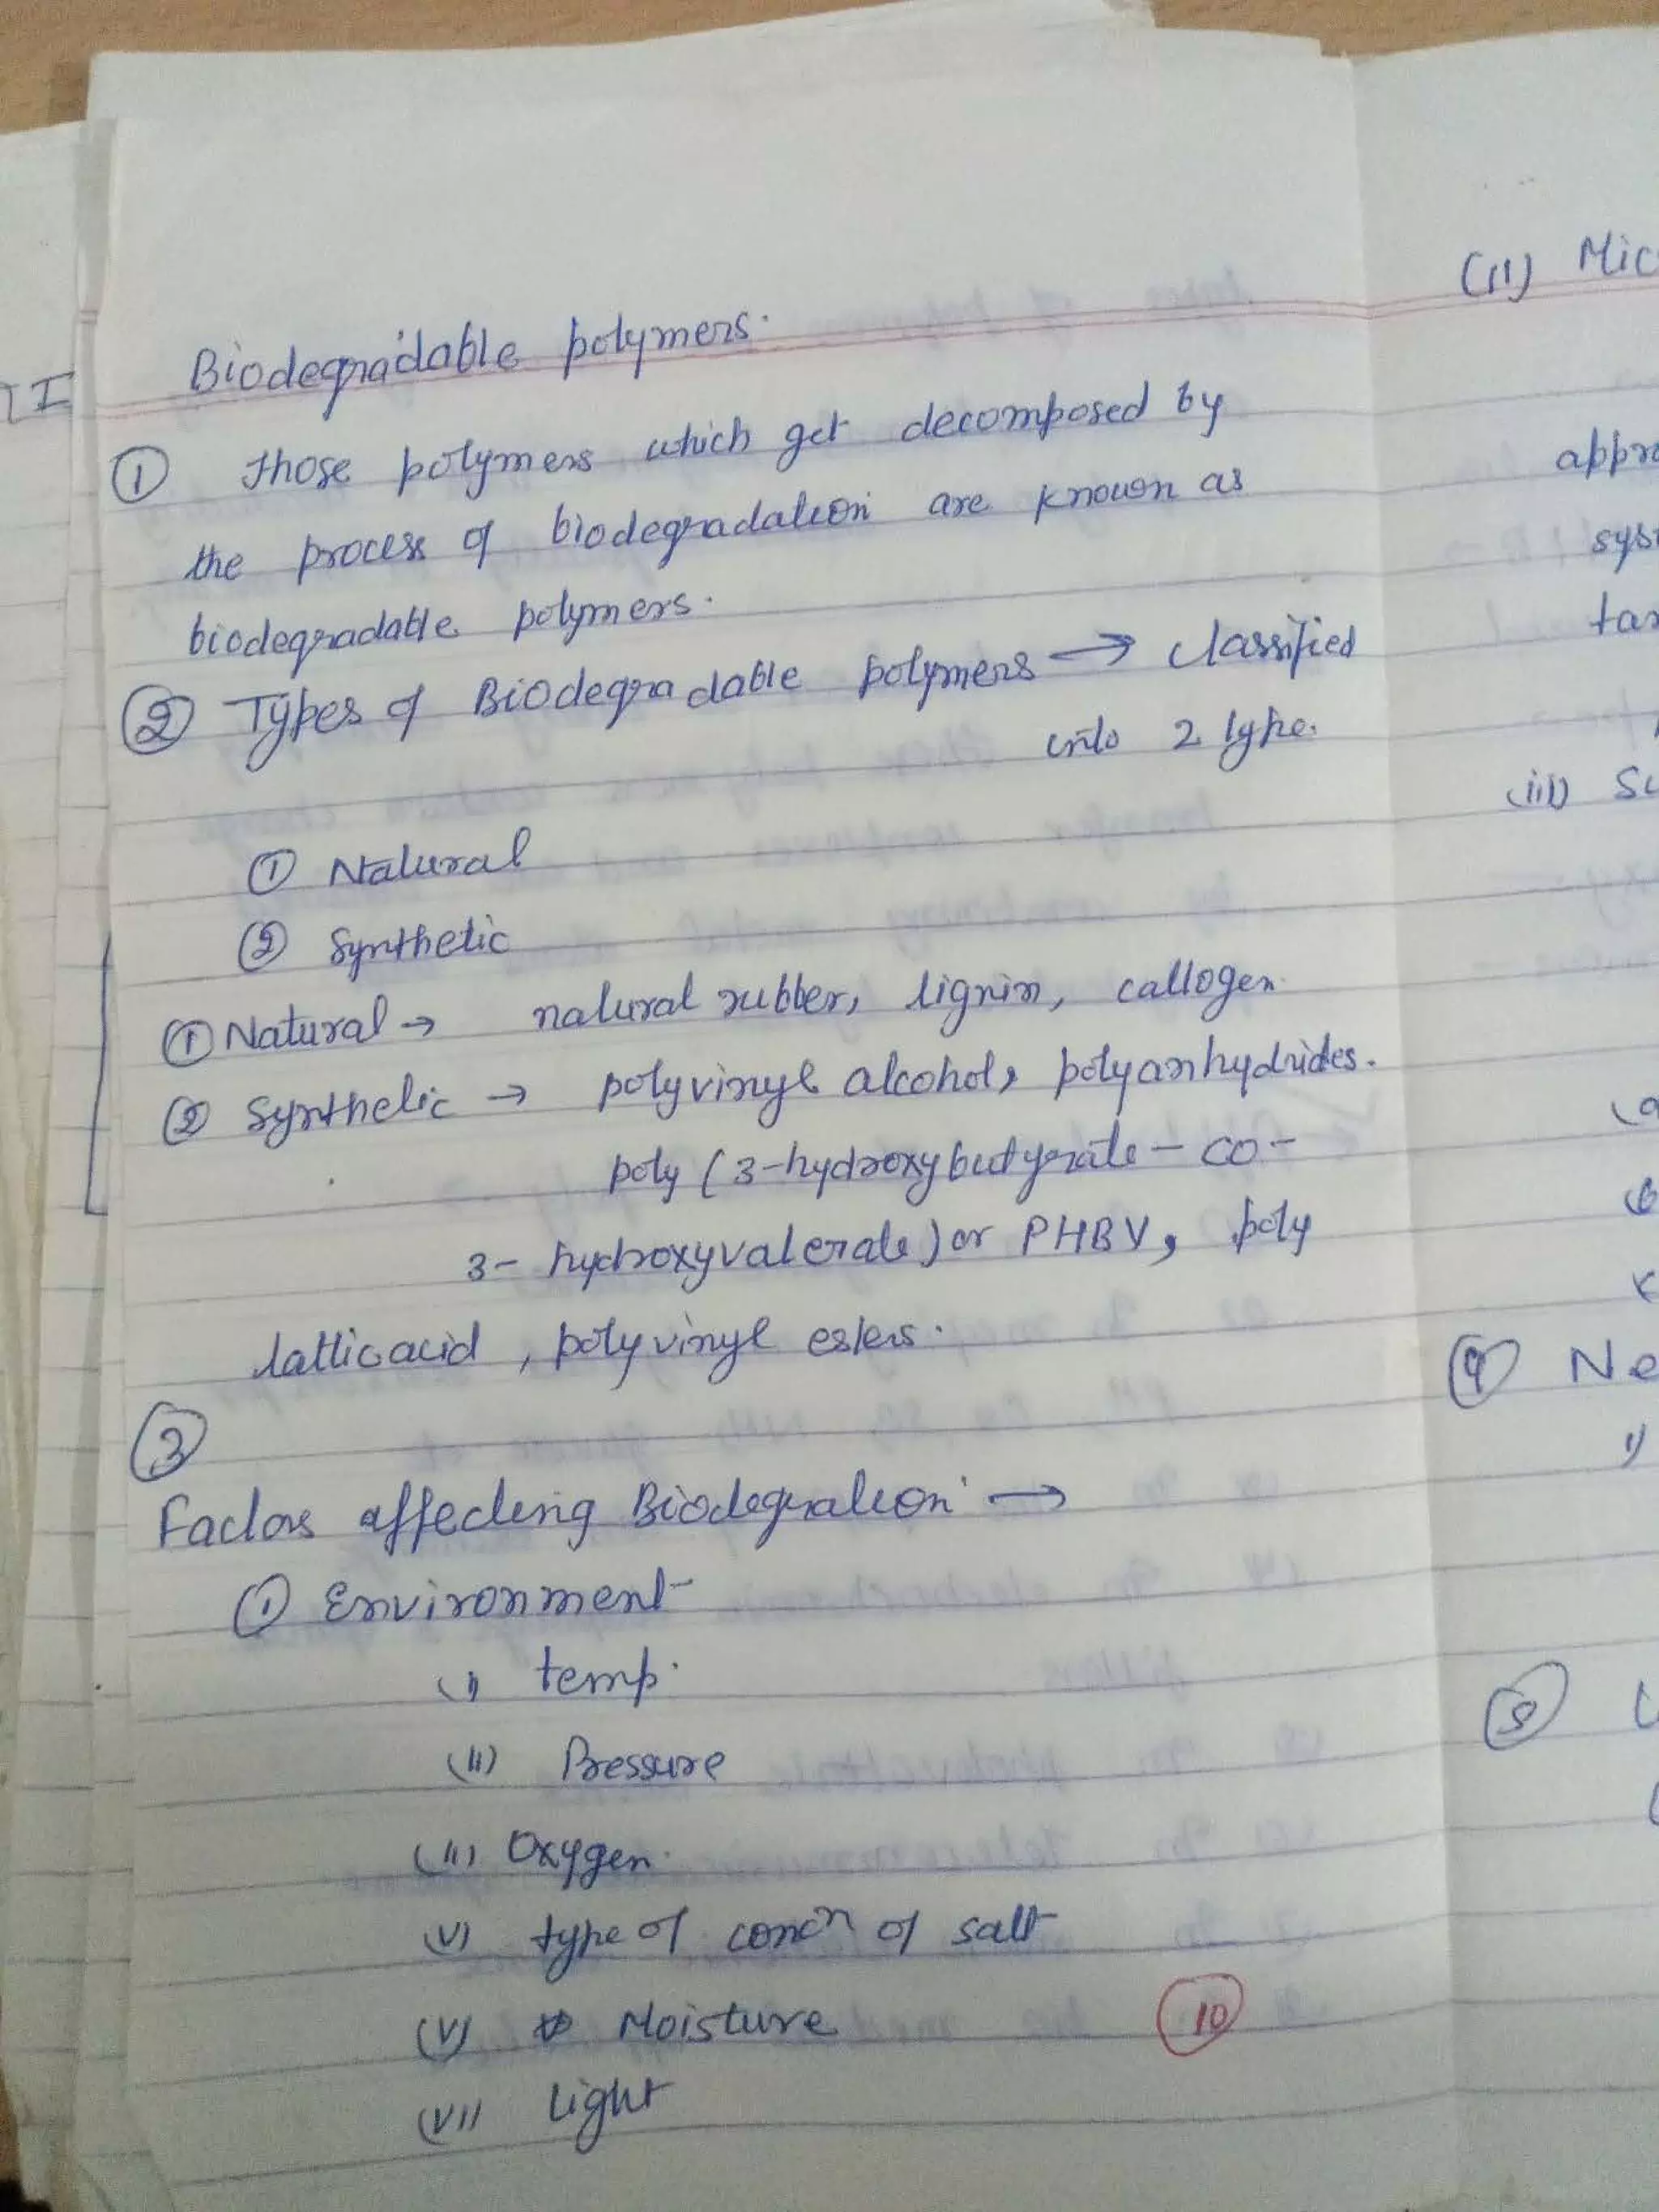 Biodegradable polymers.
① Those polymers which get decomposed by
the process of biodegradation are known as
biodegradable polymers.
② Types of Biodegradable polymers → classified
into 2 type.
① Natural
② Synthetic
① Natural → natural rubber, lignin, callogen
② Synthetic → polyvinyl alcohol, polyanhydrides.
poly (3-hydroxybutyrate - co -
3- hydroxyvalerate) or PHBV, poly
lattic acid, polyvinyl esters.
③
Factors affecting Biodegration →
① Environment-
(i) temp.
(ii) Pressure
(iii) Oxygen.
(v) type of concn of salt
(v) Moisture
(vii) Light
10
(ii) Mic
appro
syst
tar
(iii) Su
④ Ne
i)
⑤